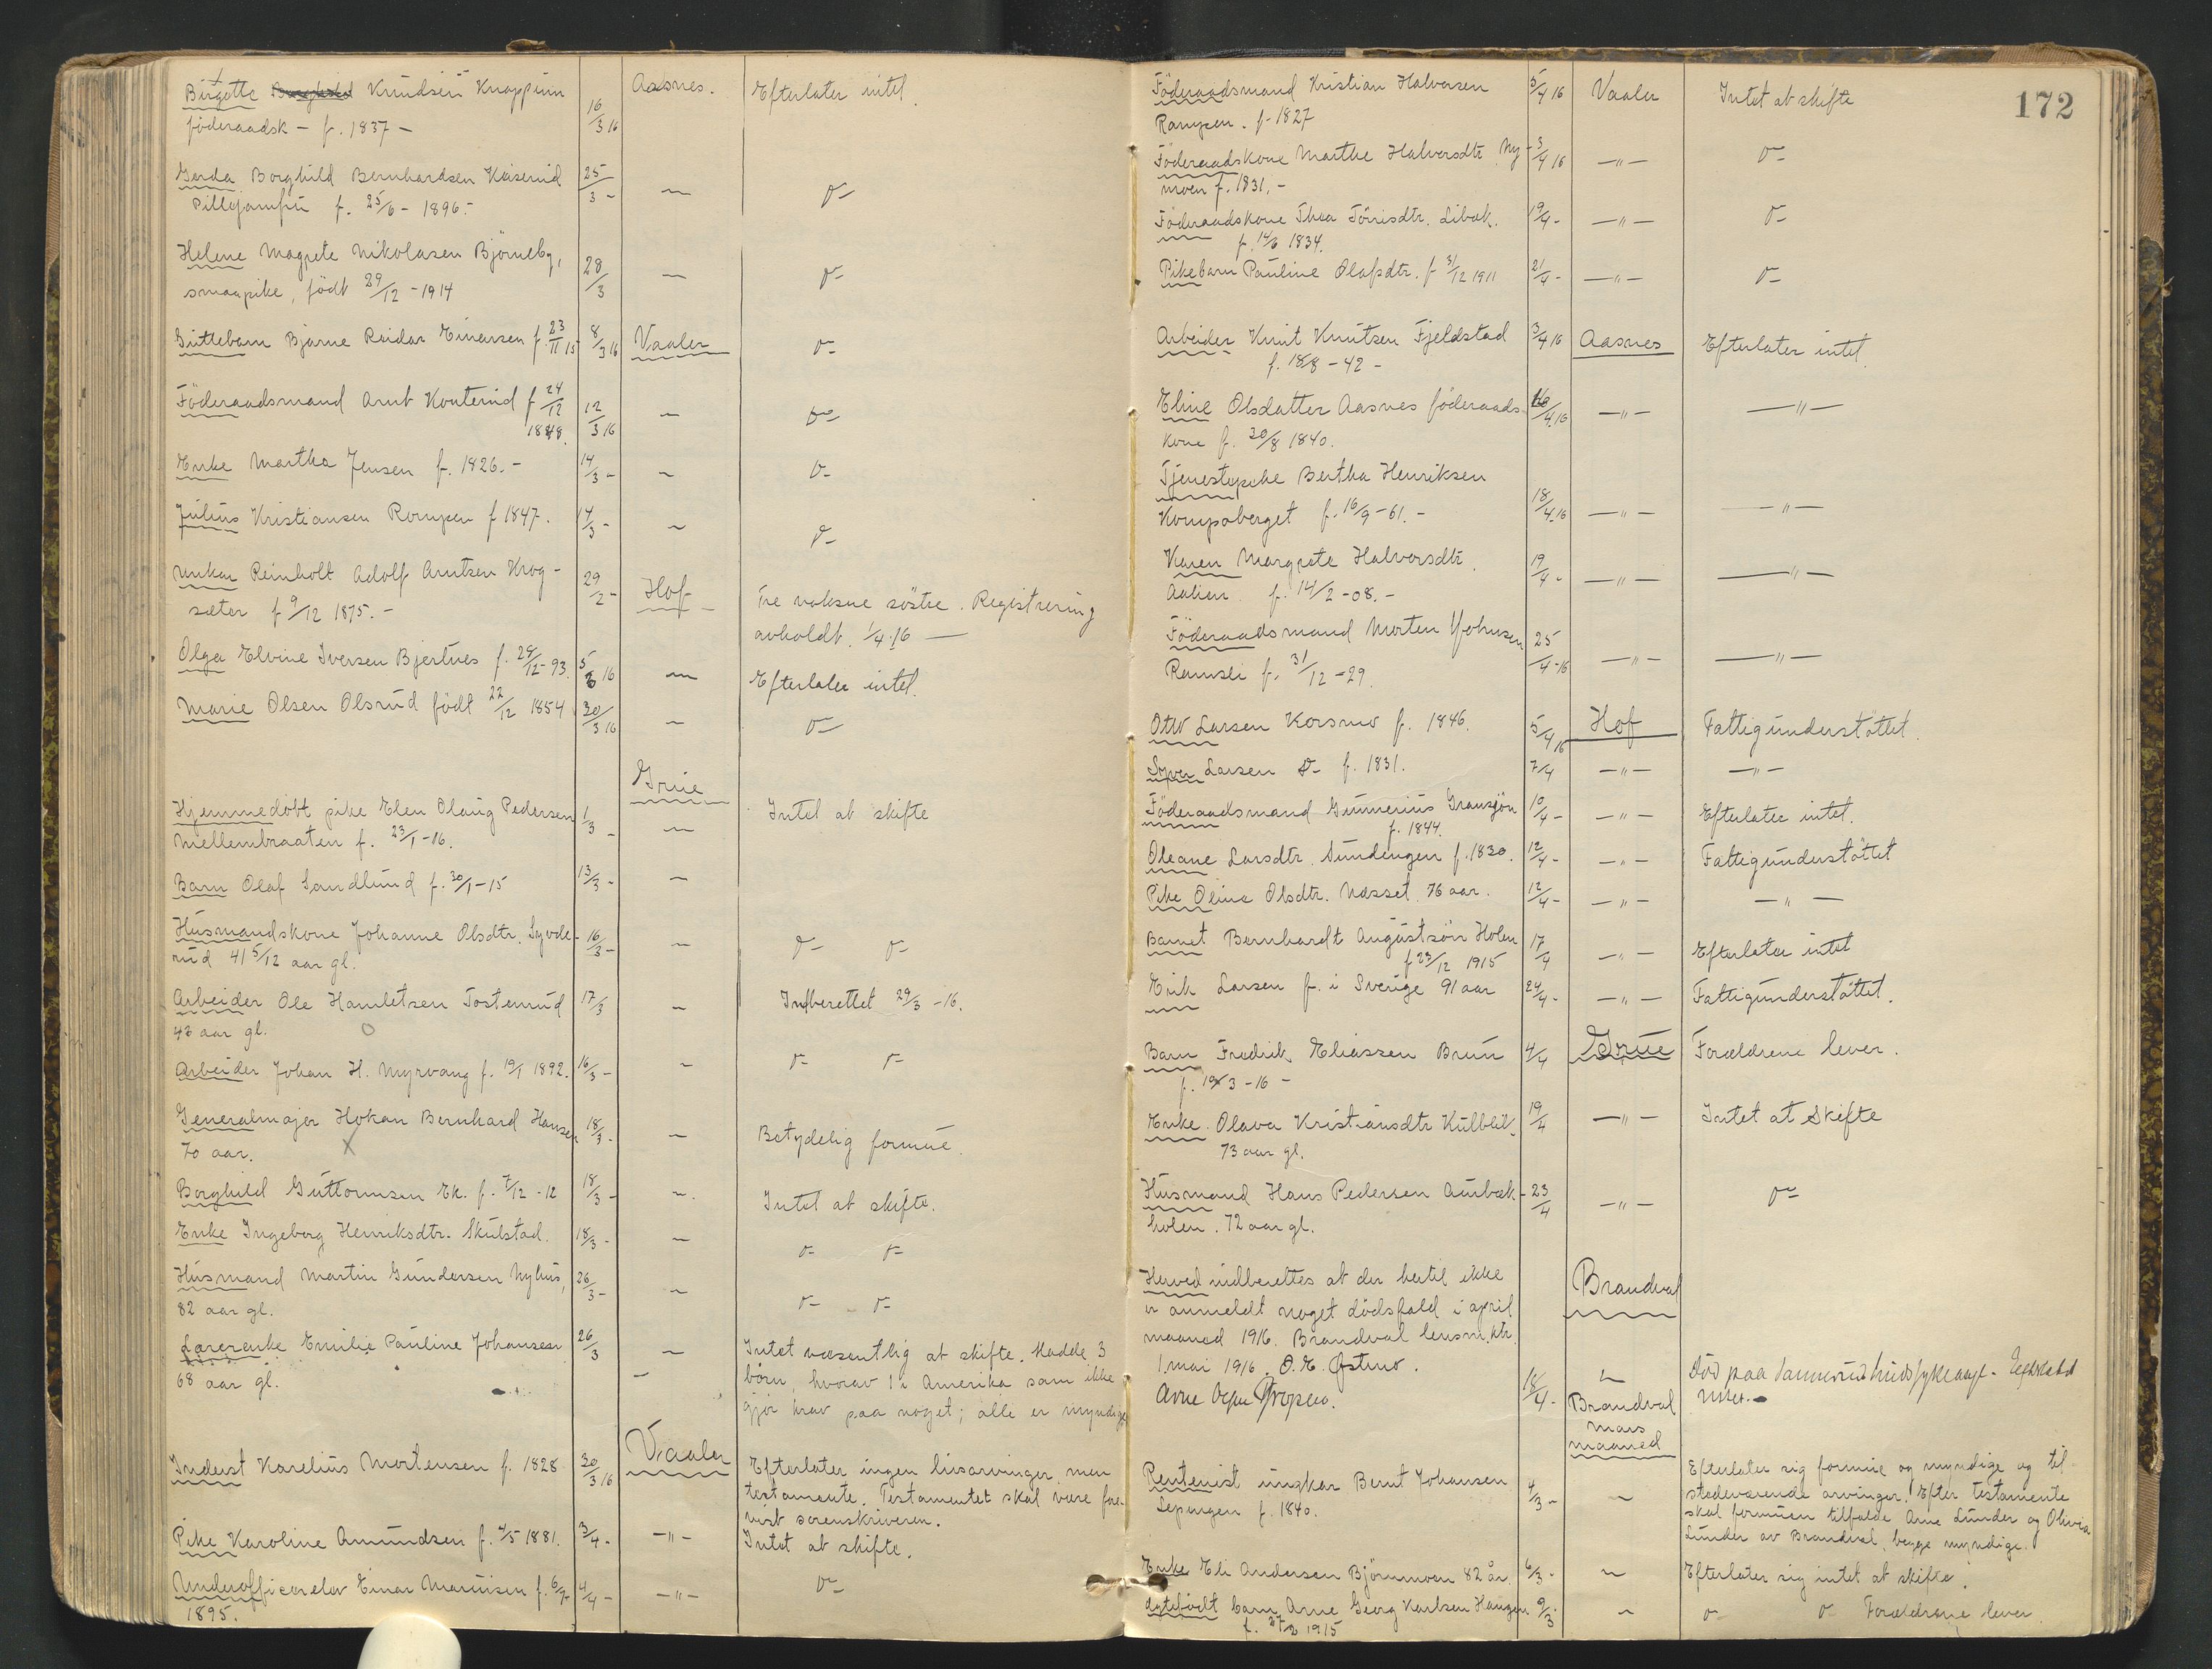 Birgitte Knudsen Knappum 16/3 16 Aasnes. Efterlater intet.
föderaadsk – f. 1837 –
Gerda Borghild Bernhardsen Kaiserud 25/3 – — σ–
f. 25/6 – 1896.–
Helene Magrete Nikolasen Björneby, 28/3 — σ–
smaapike, födt 29/12 – 1914
Guttebarn Bjarne Reidar Einarsen f. 23/11 15 8/3 16 Vaaler σ–
Föderaadsmand Arnt Kouterud f 24/12 12/3 16 — σ–
1848.
Enke Martha Jensen f. 1826.– 14/3 – — σ–
Julius Kristiansen Rompen f 1847. 14/3 – — σ–
Unkar Reinholt Adolf Arntzen Krog- 29/2 – Hof Tre voksne söstre. Registrering
sæter f 9/12 1875.– avholdt 1/4.16 —
Olga Elvine Iversen Bjertnes f. 29/12–93. 5/3 16 — Efterlater intet.
Marie Olsen Olsrud födt 22/12 1854 30/3 16 — σ–
Grue
Hjemmedöbt pike Elen Olaug Pedersen 1/3 – — Intet at skifte
Mellembraaten f. 23/1–16.
Barn Olaf Sandlund f. 30/1–15 13/3 – —
Husmandskone Johanne Olsdtr. Syvde- 16/3 – — σ– σ–
rud 41 5/12 aar gl.
Arbeider Ole Hamletsen Tosterud 17/3 — Indberettet 29/3 –16.
42 aar gl.
Arbeider Johan H. Myrvang f. 19/1 1892. 16/3 – — σ– σ–
Generalmajor Hokan Bernhard Hansen 18/3 – — Betydelig formue.
70 aar.
Borghild Guttormsen Ek. f. 7/12 – 12 18/3 – — Intet at skifte.
Enke Ingeborg Henriksdtr. Skulstad. 18/3 – — σ– σ–
Husmand Martin Gundersen Nyhus, 26/3 – — σ– σ–
82 aar gl.
Lærerenke Emilie Pauline Johansen 26/3 — Intet væsentlig at skifte. Hadde 3
68 aar gl. börn, hvorav 1 i Amerika som ikke
gjör krav paa noget; alle er myndige
Inderst Karelius Mortensen f. 1828 30/3 16 Vaaler Efterlater ingen livsarvinger men
testamente. Testamentet skal være fore-
vist sorenskriveren.
Pike Karoline Amundsen f. 4/5 1881. 3/4 – —"— Intet at skifte.
Underofficerelev Einar Maurisen f. 6/7– 4/4 – —"— σ–
1895.
172
Föderaadsmand Kristian Halvorsen 5/4 16 Vaaler Intet at skifte
Rompen. f– 1827
Föderaadskone Marthe Halvorsdtr. Ny- 3/4 16 —"— σ–
moen f. 1831.–
Föderaadskone Thea Tönisdtr. Libak. 19/4 – —"— σ–
f. 14/6 1834.
Pikebarn Pauline Olafsdtr. f 31/12 1911 21/4 – —"— σ–
Arbeider Knut Knutsen Fjeldstad 3/4 16 Aasnes Efterlater intet.
f. 18/8 – 42 –
Eline Olsdatter Aasnes föderaads- 4.16 —"— —"—
kone f. 30/8 1840.
Tjenestepike Bertha Henriksen
Kompaberget f. 16/9 – 61.– 18/4 16 —"— —"—
Karen Margrete Halvorsdtr. 19/4 – —"— —"—
f. 14/2 – 08.–
Föderaadsmand Morten Johnsen 25/4 –16 —"— —"—
f. 31/12 – 29.
Otto Larsen Korsmo f. 1846. 5/4 16 Hof Fattigunderstöttet.
Syver Larsen σ– f. 1831. 7/4 —"— —"—
Föderaadsmand Gunnerius Gransjön 10/4 – —"— Efterlater intet.
f. 1844.
Oleane Larsdtr. Sundengen f. 1830. 12/4 – —"— Fattigunderstöttet
Pike Oline Olsdtr. Næsset. 76 aar. 12/4 – —"— —"—
Barnet Bernhardt Augustsön Holen 17/4 —"— Efterlater intet
f 23/12 1915
Erik Larsen f. i Sverige 91 aar 24/4 – —"— Fattigunderstöttet.
Barn Fredrik Eliassen Brun 4/4 Grue Forældrene lever.
f. 19/3 –16 –
Enke Olava Kristiansdtr Kulblik. 19/4 —"— Intet at Skifte
73 aar gl.
Husmand Hans Pedersen Aurbæk- 23/4 —"— σ–
holen. 72 aar gl.
Herved indberettes at der hertil ikke Brandval
er anmeldt noget dödsfald i april
maaned 1916. Brandval lensm.ktr.
1. mai 1916. O. E. Östmo.
Arne 18/4 – — Död paa
Brandval
mars
maaned
Rentenist ungkar Bernt Johansen 4/3 – — Efterlater sig formue og myndige og til-
Sepengen f. 1840. stedeværende arvinger. Efter testamente
skal formuen tilfalde Arne Lunder og Olivia
Lunder av Brandval, begge myndige.
Enke Eli Andersen Björnmoen 82 år. 6/3 – — Efterlater sig intet at skifte.
barn Arne Georg Karlsen Haugen 9/3 – — σ– σ– Forældrene lever.
f. 27/2 1915